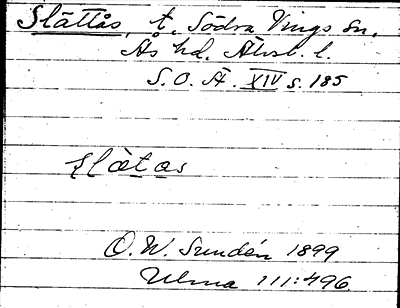 Slättås, t. Södra Vings sn.
Ås hd. Älvsb. l.
S.O.Ä. XIV s. 185
slätas
O. W. Sundén 1899
Ulma 111:496